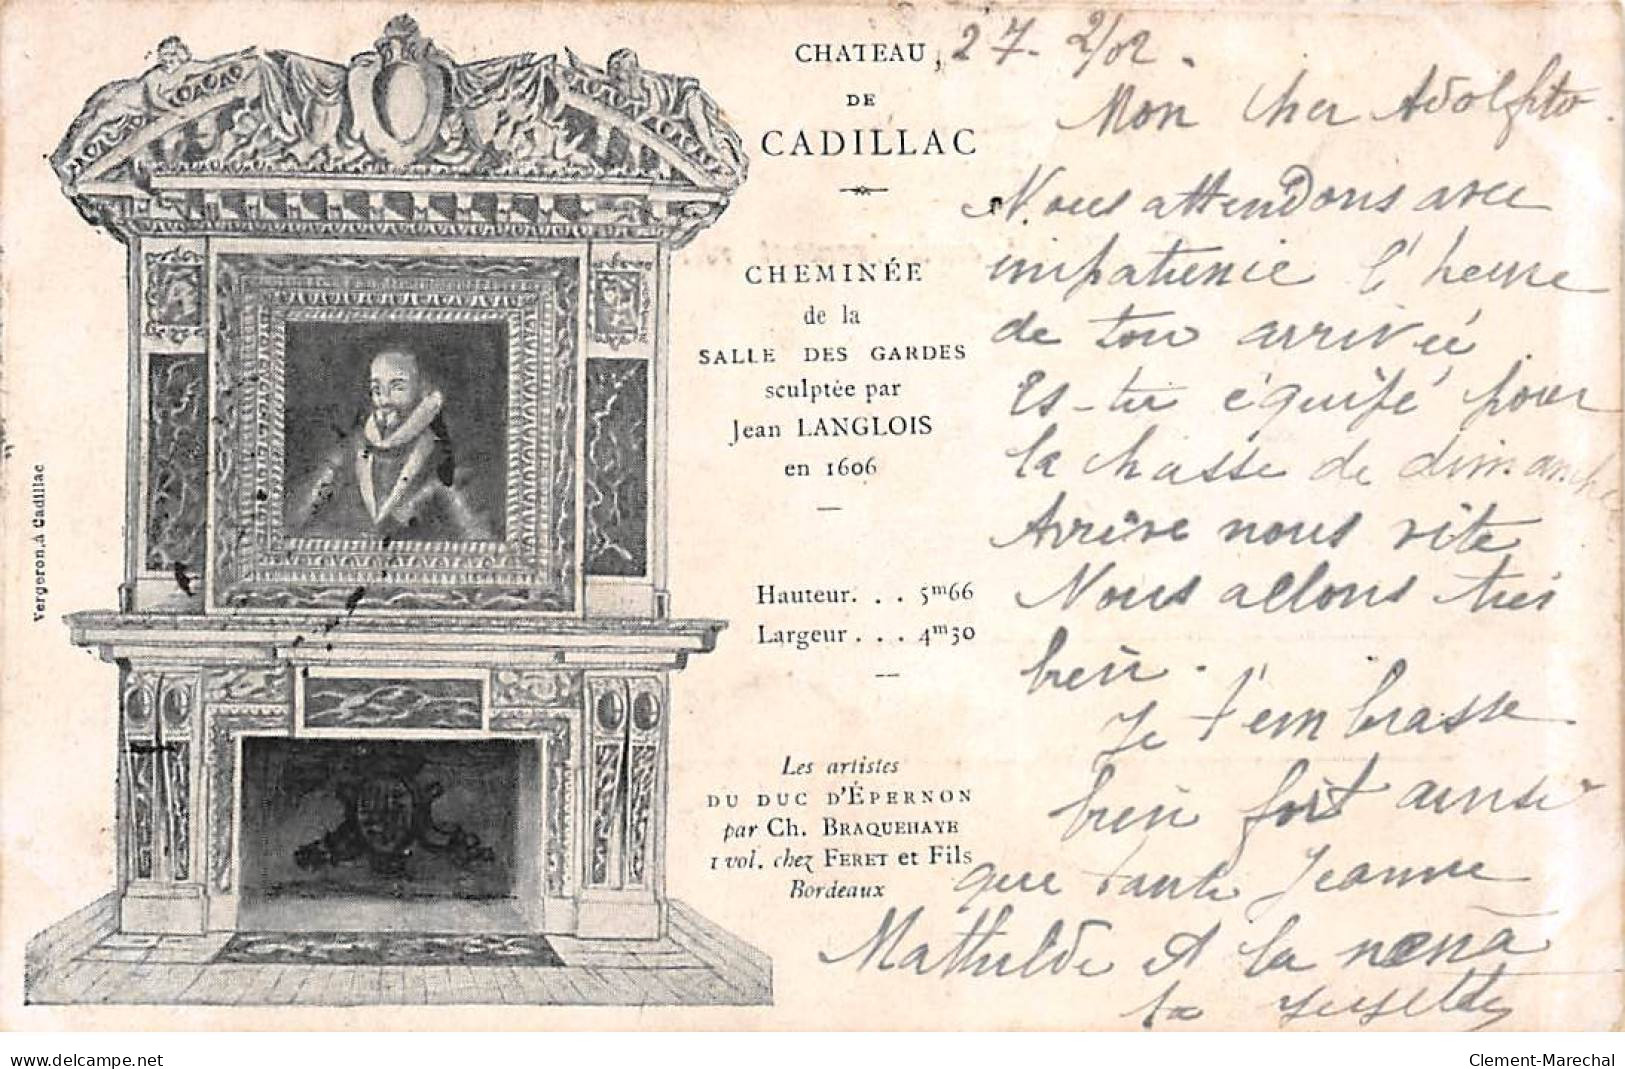 CHATEAU
DE
CADILLAC
CHEMINÉE
de la
SALLE DES GARDES
sculptée par
Jean LANGLOIS
en 1606
Hauteur. . . 5m66
Largeur . . . 4m30
Les artistes
DU DUC D'ÉPERNON
par Ch. BRAQUEHAYE
1 vol. chez FERET et Fils
Bordeaux
Vergeron, à Cadillac
27. 2/02.
Mon cher Adolfito
Nous attendons avec
impatience l'heure
de ton arrivée
Es-tu équipé pour
la chasse de dimanche
Arrive nous vite
Nous allons très
bien.
Je t'embrasse
bien fort ainsi
que tante Jeanne
Mathilde et la nena
ta
www.delcampe.net
Clement-Marechal